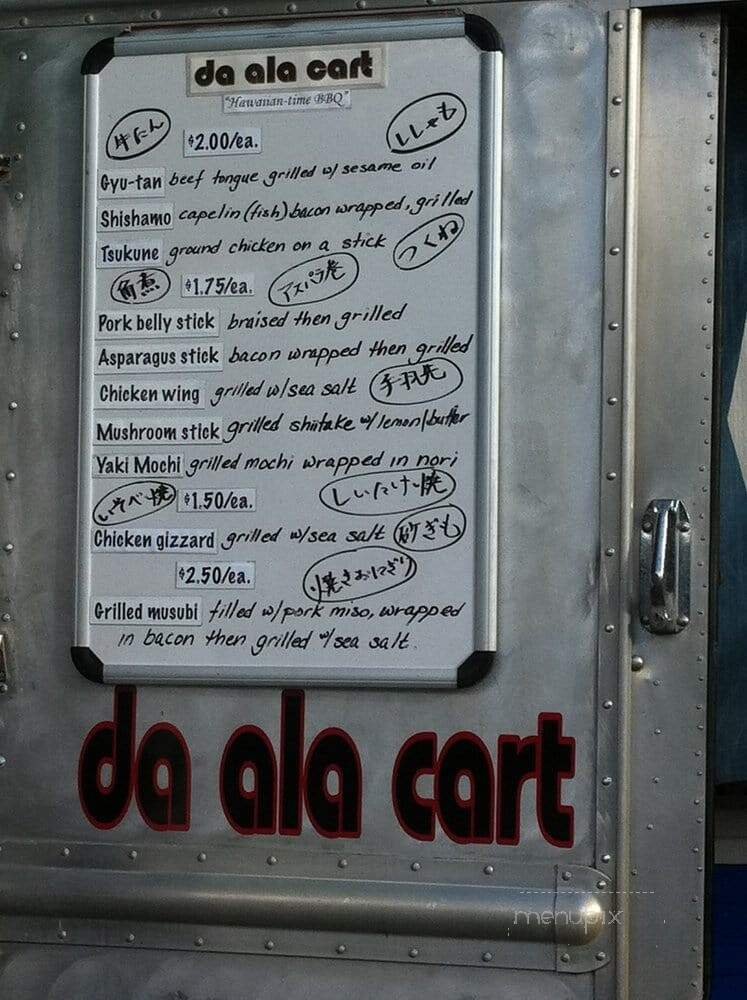 da ala cart
"Hawaiian-time BBQ"
牛たん $2.00/ea. ししゃも
Gyu-tan beef tongue grilled w/ sesame oil
Shishamo capelin (fish) bacon wrapped, grilled
Tsukune ground chicken on a stick つくね
角煮 $1.75/ea. アスパラ巻
Pork belly stick braised then grilled
Asparagus stick bacon wrapped then grilled
Chicken wing grilled w/sea salt 手羽先
Mushroom stick grilled shiitake w/ lemon/butter
Yaki Mochi grilled mochi wrapped in nori
いそべ焼 $1.50/ea. しいたけ焼
Chicken gizzard grilled w/sea salt 砂ぎも
$2.50/ea. 焼きおにぎり
Grilled musubi filled w/pork miso, wrapped
in bacon then grilled w/sea salt.
da ala cart
menupix